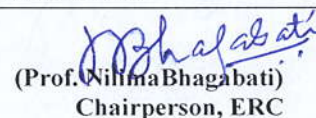 NBhagabati
(Prof. NilimaBhagabati)
Chairperson, ERC